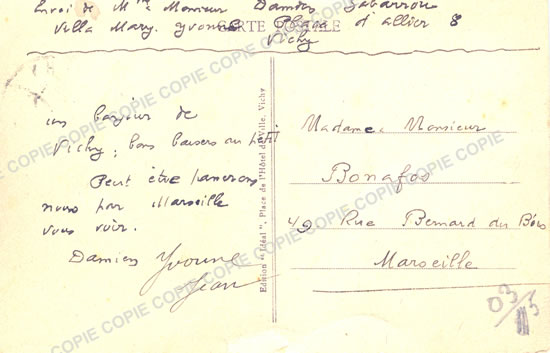 Envoi de Mme Monsieur Damien Gabarrou
Villa Mary. Yvonne Place d'allier 8
Vichy
CARTE POSTALE
un bonjour de
Vichy, bons baisers au petit
Peut être passerons
nous par Marseille
vous voir.
Damien Yvonne
Jean
Edition "Idéal", Place de l'Hôtel de Ville, Vichy
Madame. Monsieur
Bonafos
49. Rue Bernard du Bois
Marseille
COPIE COPIE COPIE COPIE COPIE COPIE